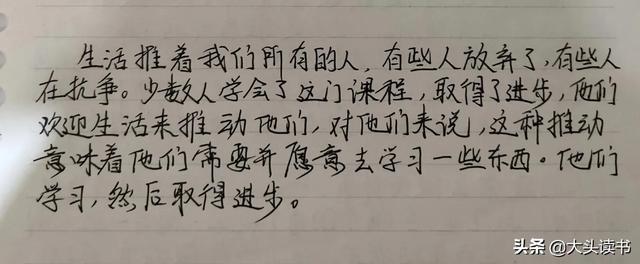 生活推着我们所有的人，有些人放弃了，有些人
在抗争。少数人学会了这门课程，取得了进步，他们
欢迎生活来推动他们，对他们来说，这种推动
意味着他们需要并愿意去学习一些东西。他们
学习，然后取得进步。
头条@大头读书